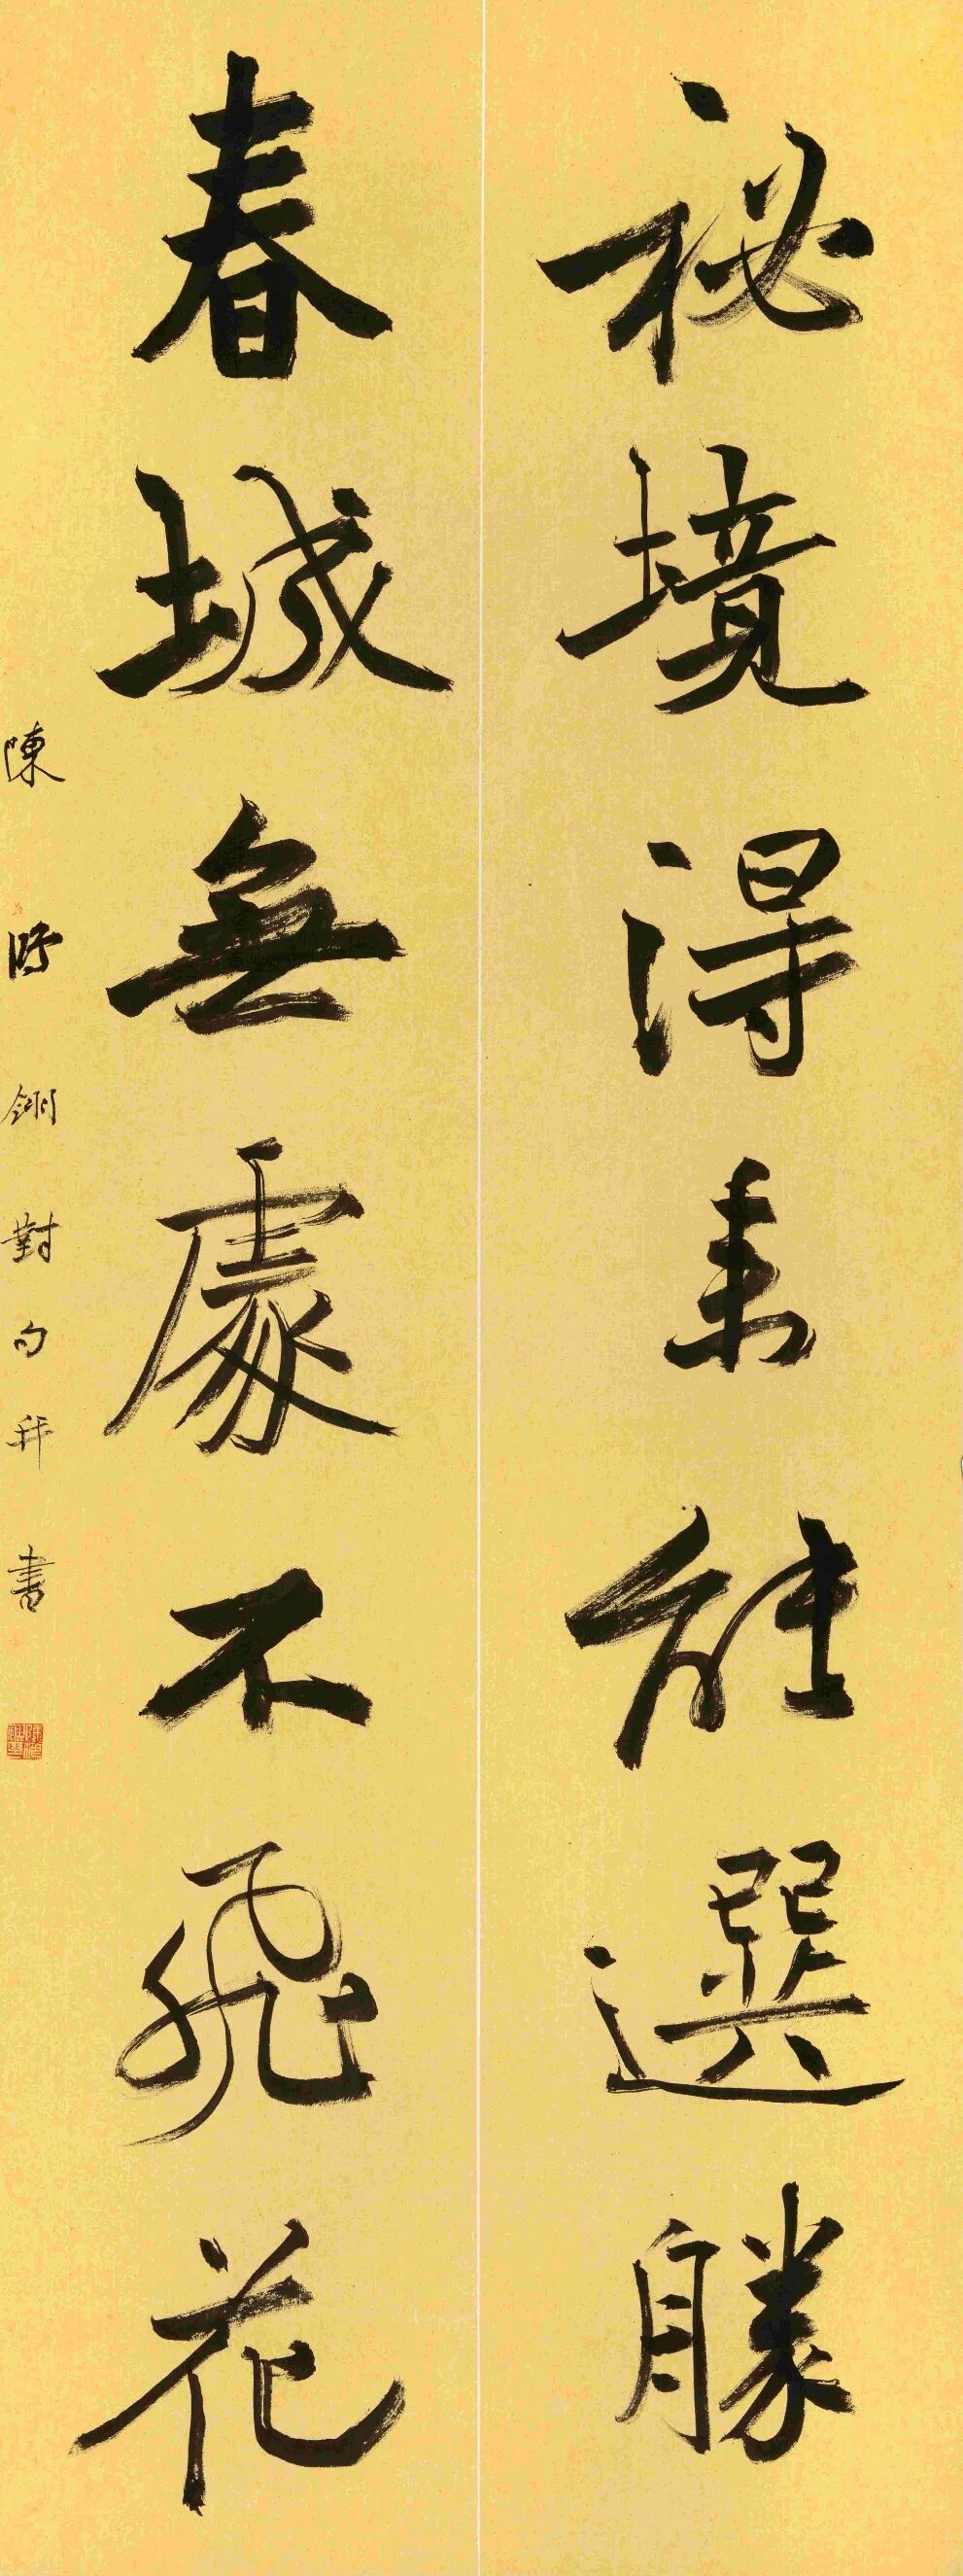 祕境得來能選勝
春城無處不飛花
陳 對句并書